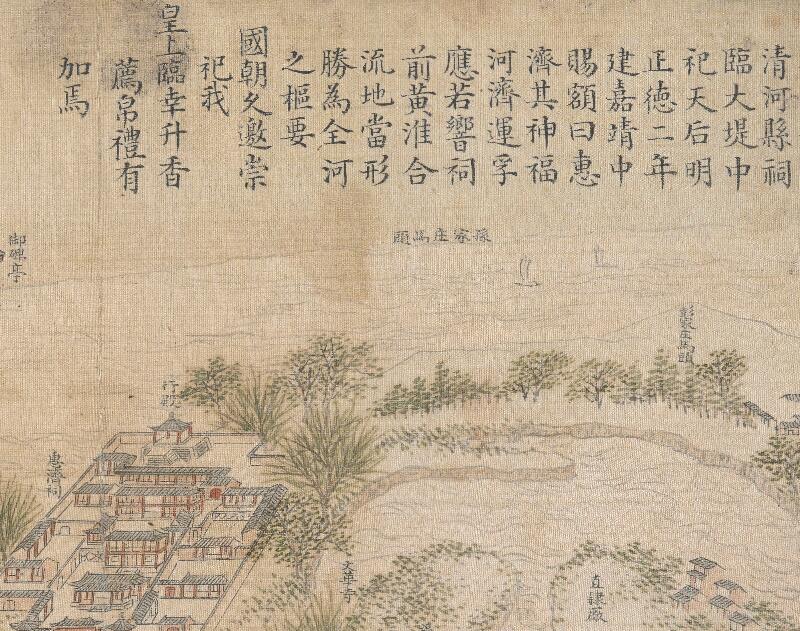 清河縣祠
臨大堤中
祀天后明
正德二年
建嘉靖中
賜額曰惠
濟其神福
河濟運孚
應若響祠
前黃淮合
流地當形
勝為全河
之樞要
國朝久邀崇
祀我
皇上臨幸升香
薦帛禮有
加焉
家庄馬頭
彭家庄馬頭
御碑亭
行殿
惠濟祠
文華寺
直隸廠